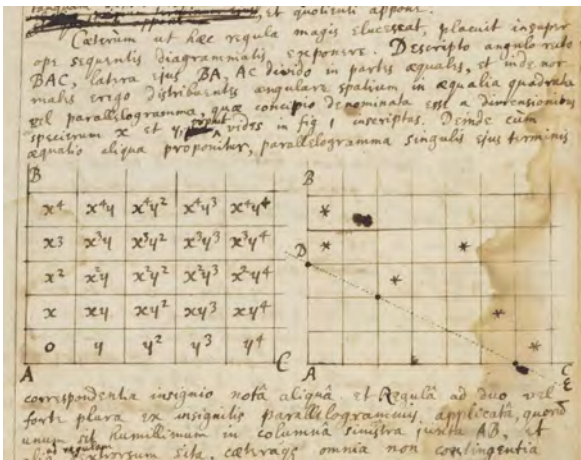 et quotienti appone.
Cæterùm ut hæc regula magis elucescat, placuit insuper
ope sequentis diagrammatis exponere. Descripto angulo recto
BAC, latera ejus BA, AC divido in partes æquales, et inde nor
males erigo distribuentes angulare spatium in æqualia quadrata
vel parallelogramma, quæ concipio denominata esse a dimensionibus
specierum x et y, prout vides in fig 1 inscriptas. Deinde cum
æquatio aliqua proponitur, parallelogramma singulis ejus terminis
B
x4 x4y x4y2 x4y3 x4y4
x3 x3y x3y2 x3y3 x3y4
x2 x2y x2y2 x2y3 x2y4
x xy xy2 xy3 xy4
0 y y2 y3 y4
A C
B
* 
* *
D
*
*
*
A C
E
correspondentia insignio notâ aliquâ et Regulâ ad duo vel
forte plura ex insignitis parallelogrammis applicatâ, quorum
unum sit humillimum in columnâ sinistra juxta AB, et
ad regulam
extrorsum sita, cæteraque omnia non contingentia